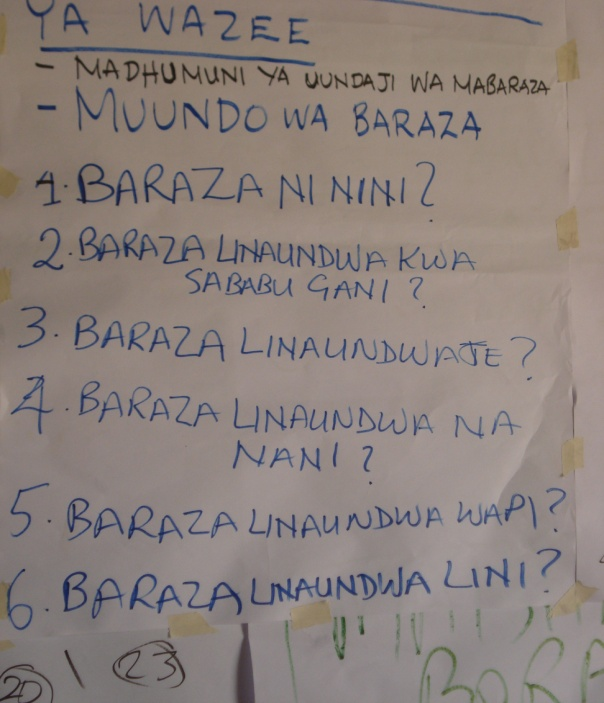 YA WAZEE
- MADHUMUNI YA UUNDAJI WA MABARAZA
- MUUNDO WA BARAZA
1. BARAZA NI NINI?
2. BARAZA LINAUNDWA KWA
SABABU GANI?
3. BARAZA LINAUNDWAJE?
4. BARAZA LINAUNDWA NA
NANI?
5. BARAZA LINAUNDWA WAPI?
6. BARAZA LINAUNDWA LINI?
20 \ 23